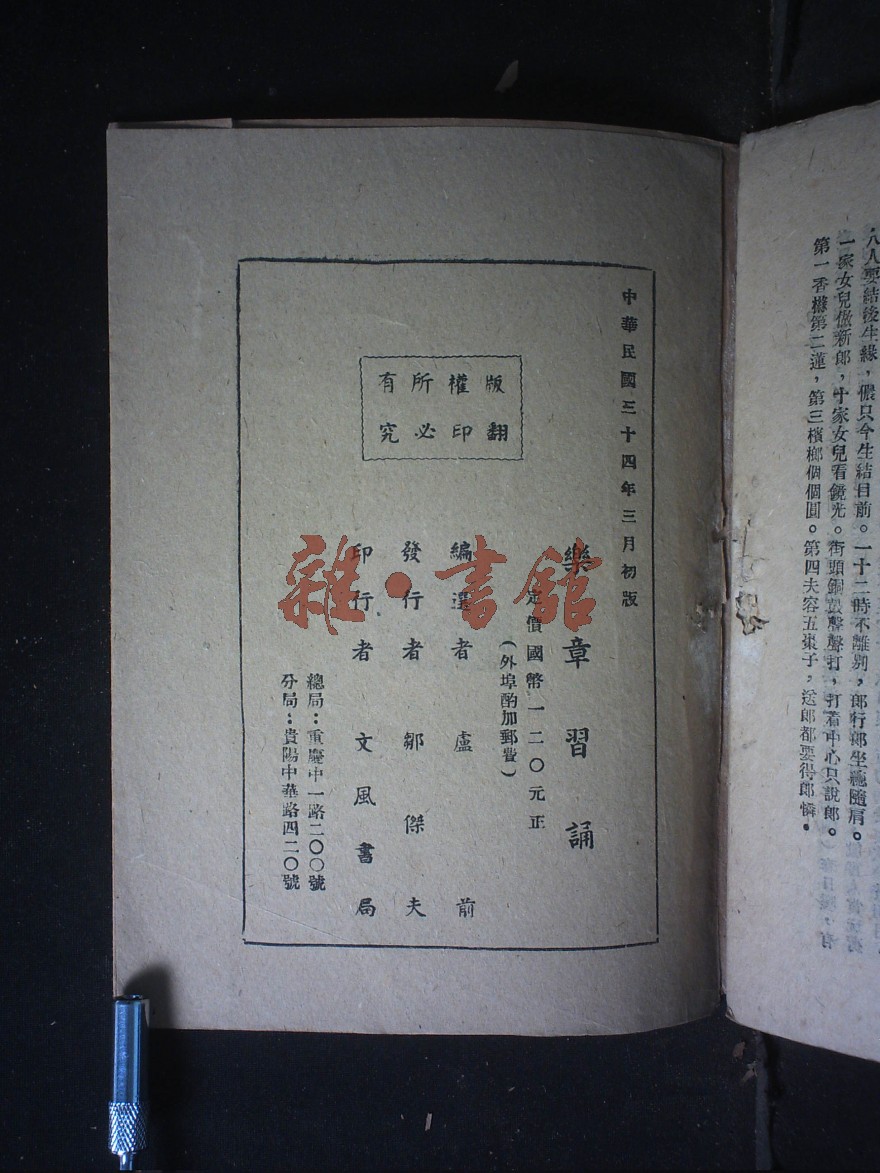 八人要結後生緣，儂只今生結目前。一十二時不離別，郎行郎坐總隨肩。
一家女兒做新郎，十家女兒看鏡光。街頭銅鼓聲聲打，打着中心只說郎。
第一香櫞第二蓮，第三檳榔個個圓。第四夫容五棗子，送郎都要得郎憐。
中華民國三十四年三月初版
版權所有
翻印必究
樂章習誦
定價國幣一二〇元正
（外埠酌加郵費）
編選者 盧前
發行者 鄒傑夫
印行者 文風書局
總局：重慶中一路二〇〇號
分局：貴陽中華路四二〇號
雜·書館